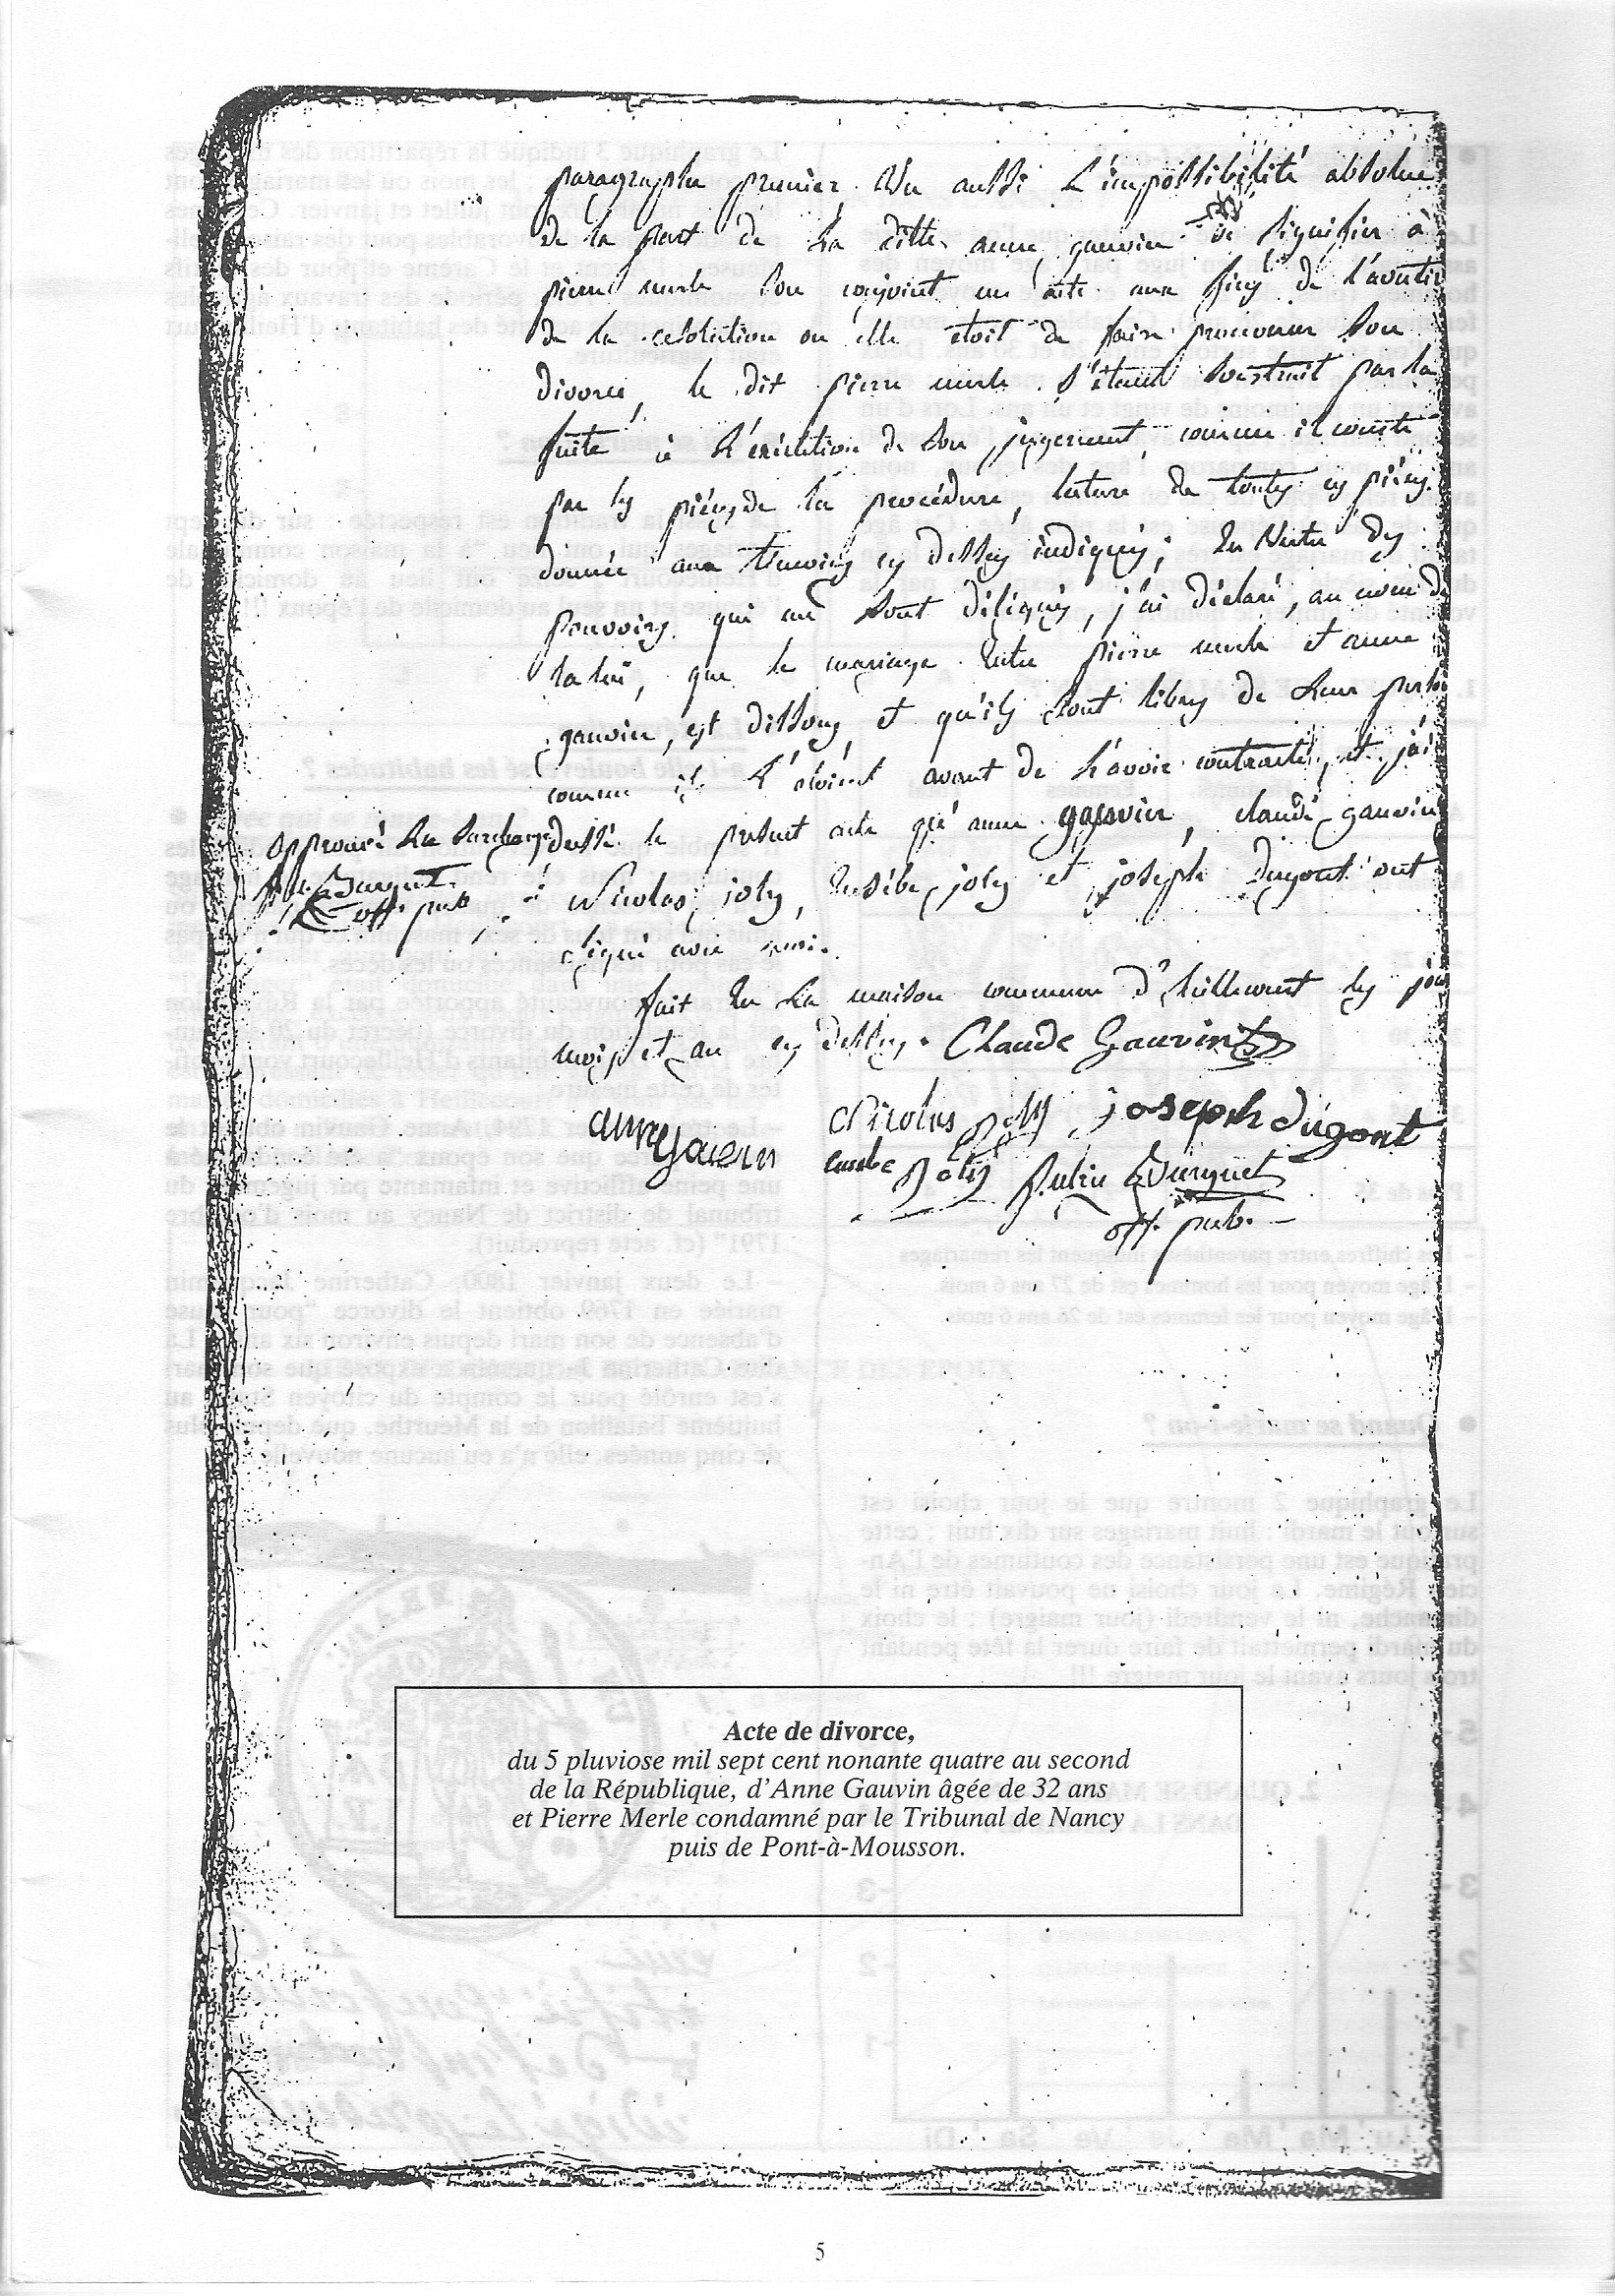 paragraphe premier, Vu aussi l'impossibilité absolue
de la part de la ditte anne gauvin de signifier à
pierre merle son conjoint un acte aux fins de l'avertir
de la resolution ou elle etoit de faire prononcer son
divorce, le dit pierre merle s'étant soustrait par la
fuite à l'exécution de son jugement, comme il conste
par les pièces de la procédure, lecture de toutes ces pièces
donnée aux temoins cy dessus indiqués; En Vertu des
pouvoirs qui me sont délégués, j'ai déclaré, au nom de
la loi, que le mariage entre pierre merle et anne
gauvin, est dissous, et qu'ils sont libres de leur
comme ils l'étoient avant de l'avoir contracté, et j'ai
dressé le présent acte qu'anne gauvin, claude gauvin
Approuvé la surcharge
off. pub
Nicolas joly, Eusèbe joly et joseph Dugont ont
signé avec moi.
fait En la maison commune d'heillecourt les jour
mois et an cy dessus. Claude Gauvin
anne gauvin Nicolas Joly joseph dugont
Eusebe Joly
off. pub.
Acte de divorce,
du 5 pluviose mil sept cent nonante quatre au second
de la République, d'Anne Gauvin âgée de 32 ans
et Pierre Merle condamné par le Tribunal de Nancy
puis de Pont-à-Mousson.
5